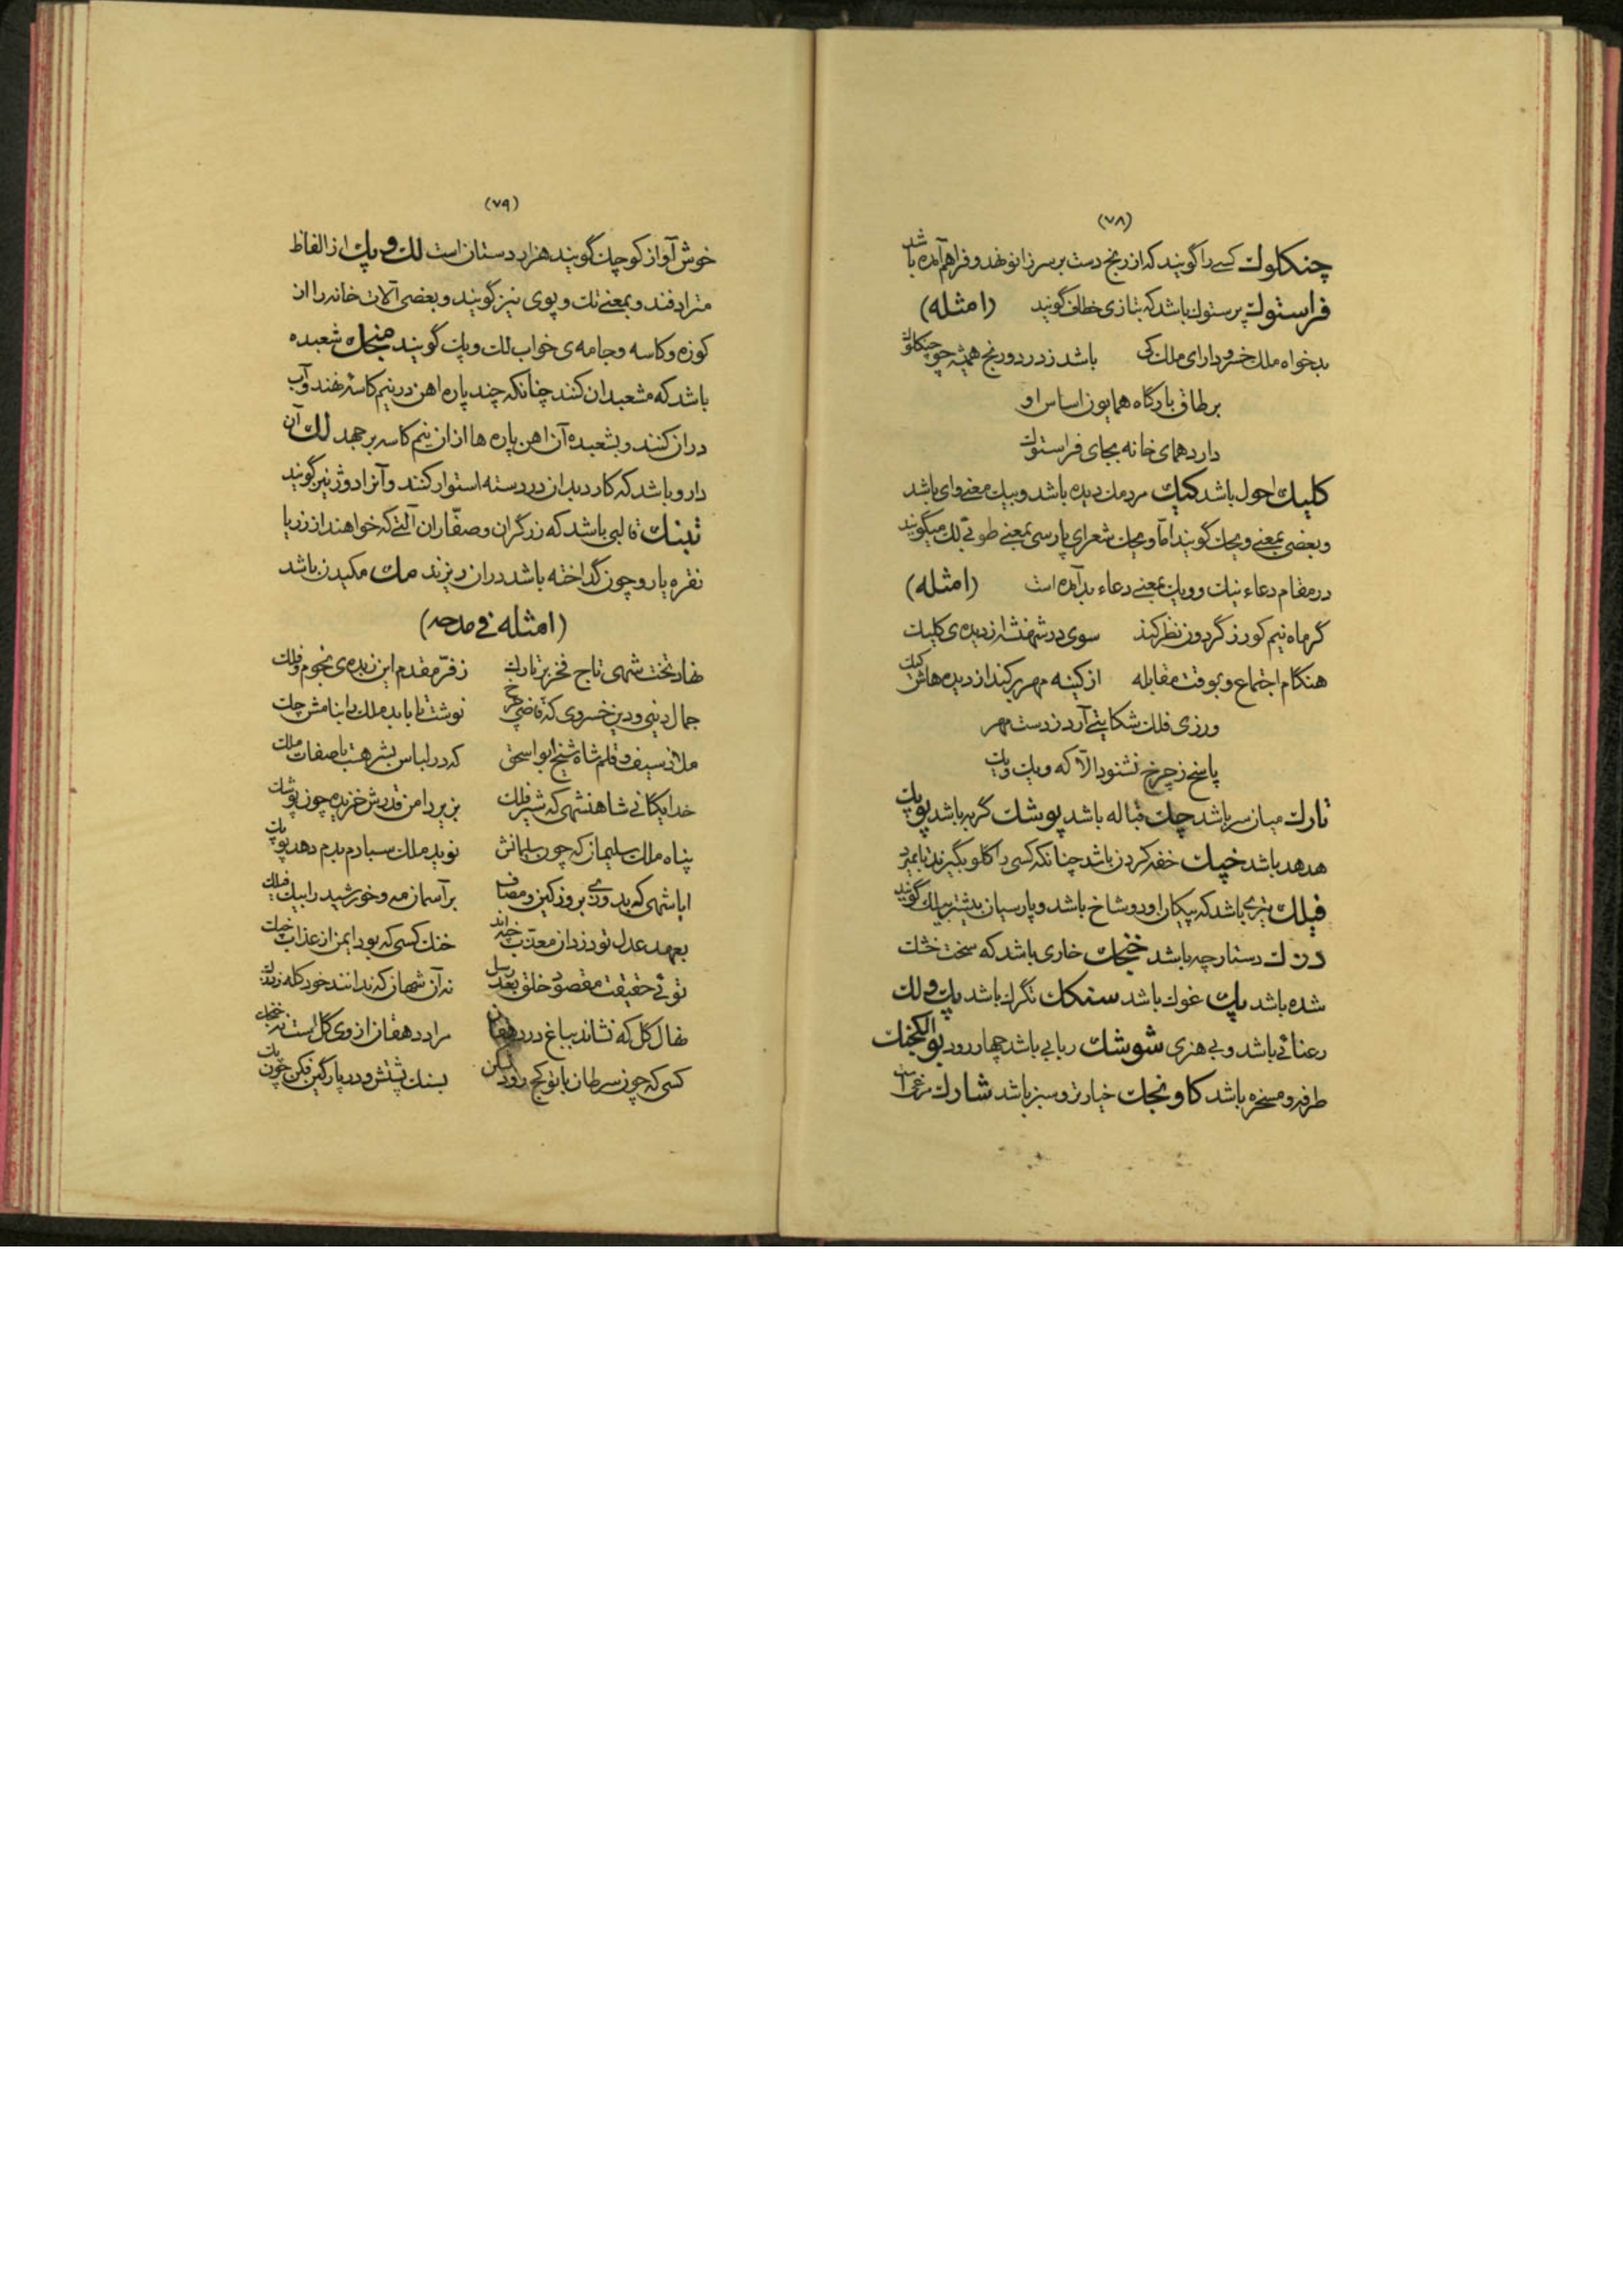 (۷۸)
چنکلوك کسی را گویند که از رنج دست بر سر زانو نهد و فراهم آمده باشد
فراستوك پرستوك باشد که بتازی خطاف گویند (امثله)
بدخواه ملك خسرو دارای ملك کی باشد ز درد و رنج همیشه چو چنکلوك
بر طاق بارگاه همایون اساس او
دارد همای خانه بجای فراستوك
کلیك احول باشد کیك مردمك دیده باشد و ویك معنی وای باشد
و بعضی بمعنی ویحك گویند اما ویحك شعرای پارسی بمعنی طوبی لك میگویند
در مقام دعاء نیك و ویك بمعنی دعاء بد آمده است (امثله)
گر ماه نیم کور ز گردون نظر کند سوی در شهنشه از دیده‌ی کلیك
هنگام اجتماع و بوقت مقابله از کینه مهر بر کند از دیده هاش کیك
ور زی فلك شکایتی آرد ز دست مهر
پاسخ ز چرخ نشنود الّا که ویك ویك
تارك میان سر باشد چك قباله باشد پوشك گربه باشد پوپك
هدهد باشد خپك خفه کردن باشد چنانکه کسی را گلو بگیرند تا بمیرد
فیلك تیری باشد که پیکان او دو شاخ باشد و پارسیان بیشتر بیلك گویند
درنك دستارچه باشد خنجك خاری باشد که سخت خشك
شده باشد پك غوك باشد سنکك تگرك باشد پك و لك
رعنائی باشد و بی هنری شوشك ربابی باشد چهار رود بوالکنجك
طرفه و مسخره باشد کاونجك خیار تر و سبز باشد شارك مرغی است
(۷۹)
خوش آواز کوچك گویند هزار دستان است لك و پك از الفاظ
مترادفند و بمعنی تك و پوی نیز گویند و بعضی آلات خانه را از
کوزه و کاسه و جامه‌ی خواب لك و پك گویند منجك شعبده
باشد که مشعبدان کنند چنانکه چند پاره اهن در نیم کاسه نهند و آب
در ان کنند و بشعبده آن اهن پاره ها از ان نیم کاسه بر جهد لك آن
دارو باشد که کارد بدان در دسته استوار کنند و آنرا دوژ نیز گویند
تبنك قالبی باشد که زرگران و صفّاران آلتی که خواهند از زر یا
نقره یا رو چون گداخته باشد در ان ریزند مك مکیدن باشد
(امثله فی مدحه)
نهاد تخت شهی تاج فخر بر تارك ز فرّ مقدم این زبده‌ی نجوم و فلك
جمال دنیی و دین خسروی که قاضی چرخ نوشت تا بابد ملك را بنامش چك
ملاذ سیف و قلم شاه شیخ ابو اسحق که در لباس بشر هست با صفات ملك
خدایگانی شاهنشهی که شیر فلك بزیر دامن قدرش خزیده چون پوشك
پناه ملك سلیمان که چون سلیمانش نوید ملك سبا دم بدم دهد پوپك
ایا شهی که بدوزی بروز کین و مصاف بر آسمان مه و خورشید را بیك فیلك
بعهد عدل تو دزدان معذّب خبه‌اند خنك کسی که بود ایمن از عذاب خپك
توئی حقیقت مقصود خلق بعد رسل نه آن شهان که ندانند خود کله ز درنك
نهال گل که نشاند بباغ در دهقان مراد دهقان از وی گل است نه خنجك
کسی که چون سرطان با تو کج رود بسنك پشتش و در پارگین فکن چون پك